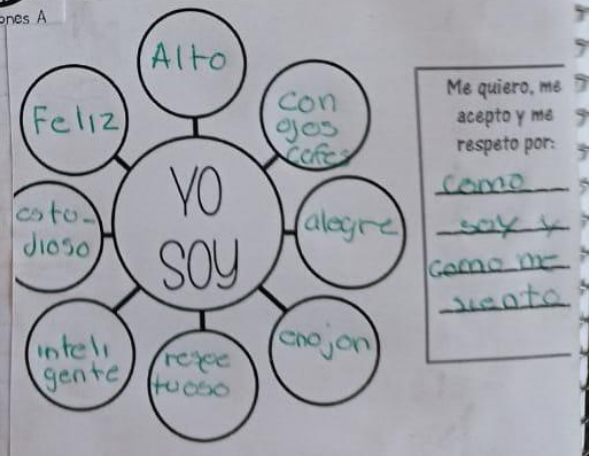 ones A
Alto
con
ojos
cafes
alegre
enojon
respe
tuoso
inteli
gente
estu-
dioso
Feliz
YO
SOY
Me quiero, me
acepto y me
respeto por:
como
soy y
como me
siento